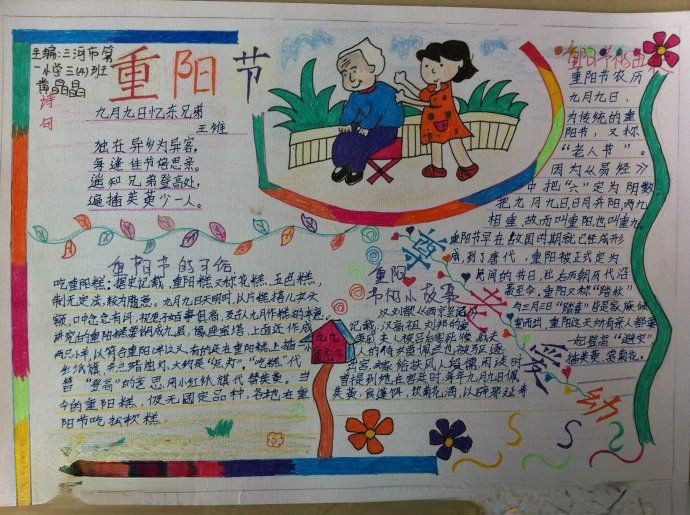 主编:三河市第
一小学三(4)班
黄晶晶
重阳节
诗句
九月九日忆东兄弟
王维
独在异乡为异客,
每逢佳节倍思亲。
遥知兄弟登高处,
遍插茱萸少一人。
重阳节的由来
重阳节农历
九月九日,
为传统的重
阳节,又称
“老人节”。
因为《易经》
中把“六”定为阴数
把九月九日,日月并阳,两九
相重,故而叫重阳也叫重九。
重阳节早在战国时期就已经成形
成,到了唐代,重阳被正式定为
民间的节日,此后历朝历代沿
袭至今,重阳又称“踏秋”
与三月三日“踏春”皆是家族倾
室而出,重阳这天所有亲人都要
一起登高“避灾”
插茱萸、赏菊花。
重阳节的习俗
吃重阳糕:据史记载,重阳糕又称花糕、五色糕,
制无定法,较为随意。九月九日天明时,以片糕搭儿女头
额,口中念念有词,祝愿子女百事俱高,乃古人九月作糕的本意。
讲究的重阳糕要做成九层,像座宝塔,上面还作成
两只小羊,以符合重阳(羊)之义。有的还在重阳糕上插一
红纸旗,并点蜡烛灯。大约是“点灯”、“吃糕”代
替“登高”的意思,用小红纸旗代替茱萸。当
今的重阳糕,仍无固定品种,各地在重
阳节吃松软糕
重阳
节的小故事
汉高祖刘邦的
被吕后
尊老爱幼
九九
重阳节